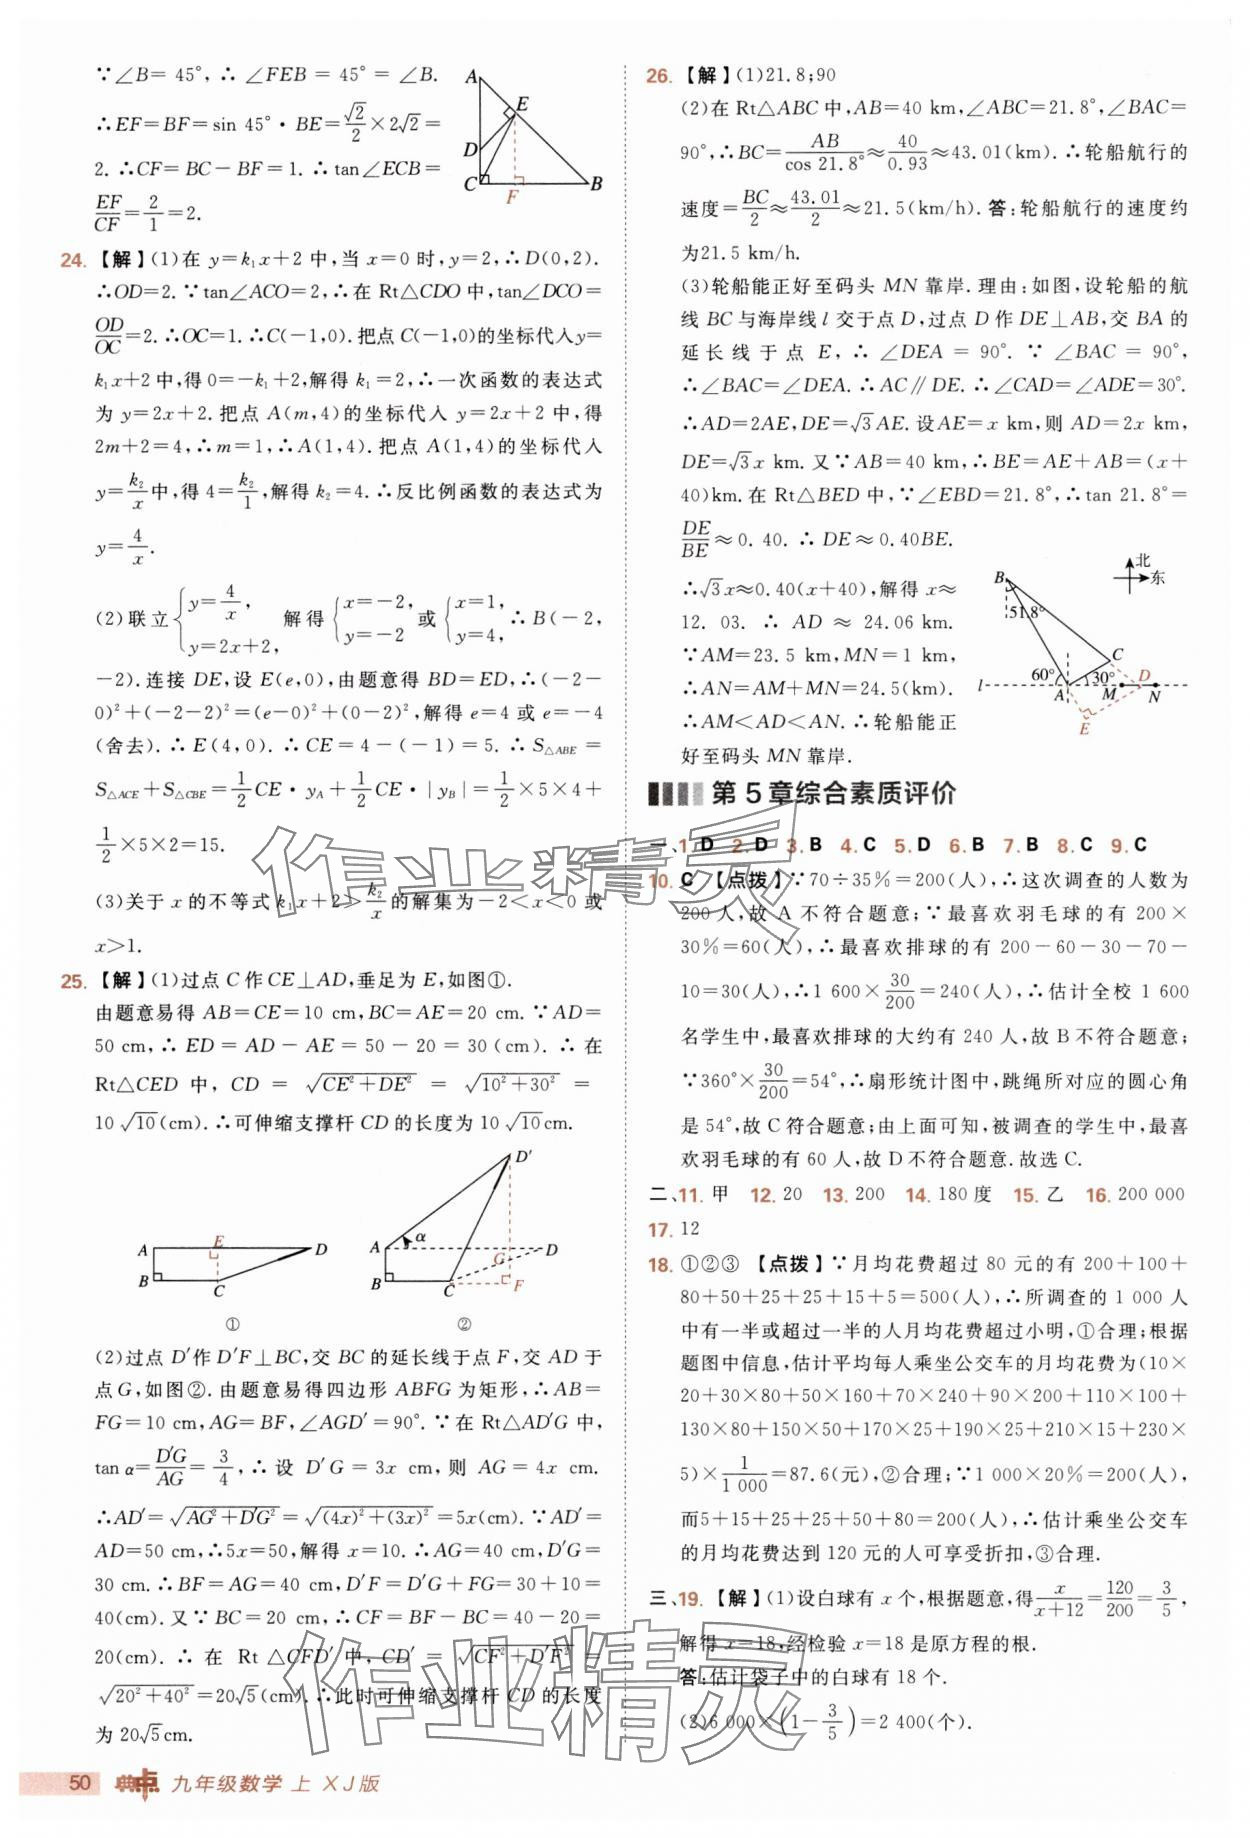 ∵∠B= 45°, ∴ ∠FEB = 45° = ∠B.
∴EF=BF=sin 45°·BE=√2/2×2√2=
2. ∴CF= BC－BF=1. ∴tan∠ECB=
EF/CF=2/1=2.
A
E
D
C
F
B
24. 【解】(1)在 y=k₁x+2 中,当 x=0 时,y=2,∴D(0,2).
∴OD=2. ∵tan∠ACO=2,∴在 Rt△CDO 中,tan∠DCO=
OD/OC=2.∴OC=1.∴C(－1,0).把点 C(－1,0)的坐标代入y=
k₁x+2 中,得 0=－k₁+2,解得 k₁=2,∴一次函数的表达式
为 y=2x+2. 把点 A(m,4)的坐标代入 y=2x+2 中,得
2m+2=4,∴m=1,∴A(1,4).把点 A(1,4)的坐标代入
y=k₂/x中,得 4=k₂/1,解得 k₂=4.∴反比例函数的表达式为
y=4/x.
(2)联立{y=4/x, y=2x+2, 解得{x=－2, y=－2 或{x=1, y=4, ∴B(－2,
－2).连接 DE,设 E(e,0),由题意得 BD=ED,∴(－2－
0)²+(－2－2)²=(e－0)²+(0－2)²,解得 e=4 或 e=－4
(舍去).∴E(4,0). ∴CE=4－(－1)=5. ∴S△ABE=
S△ACE+S△CBE=1/2CE·yA+1/2CE·|yB|=1/2×5×4+
1/2×5×2=15.
(3)关于 x 的不等式 k₁x+2>k₂/x的解集为－2<x<0 或
x>1.
25. 【解】(1)过点 C 作 CE⊥AD,垂足为 E,如图①.
由题意易得 AB=CE=10 cm,BC=AE=20 cm.∵AD=
50 cm,∴ED=AD－AE=50－20=30(cm). ∴在
Rt△CED 中, CD = √(CE²+DE²) = √(10²+30²) =
10√10(cm).∴可伸缩支撑杆 CD 的长度为 10√10cm.
A
E
D
B
C
①
D′
A
α
G
D
B
C
F
②
(2)过点 D′作 D′F⊥BC,交 BC 的延长线于点 F,交 AD 于
点G,如图②.由题意易得四边形 ABFG 为矩形,∴AB=
FG=10 cm,AG=BF,∠AGD′=90°.∵在 Rt△AD′G 中,
tan α=D′G/AG=3/4,∴设 D′G=3x cm,则 AG=4x cm.
∴AD′=√(AG²+D′G²)=√((4x)²+(3x)²)=5x(cm).∵AD′=
AD=50 cm,∴5x=50,解得 x=10.∴AG=40 cm,D′G=
30 cm.∴BF=AG=40 cm,D′F=D′G+FG=30+10=
40(cm).又∵BC=20 cm,∴CF=BF－BC=40－20=
20(cm). ∴在 Rt△CFD′中,CD′=√(CF²+D′F²)=
√(20²+40²)=20√5(cm).∴此时可伸缩支撑杆 CD 的长度
为 20√5cm.
26. 【解】(1)21.8;90
(2)在 Rt△ABC 中,AB=40 km,∠ABC=21.8°,∠BAC=
90°,∴BC=AB/cos 21.8°≈40/0.93≈43.01(km).∴轮船航行的
速度=BC/2≈43.01/2≈21.5(km/h).答:轮船航行的速度约
为21.5 km/h.
(3)轮船能正好至码头 MN 靠岸.理由:如图,设轮船的航
线 BC 与海岸线 l 交于点 D,过点 D 作 DE⊥AB,交 BA 的
延长线于点 E,∴∠DEA=90°.∵∠BAC=90°,
∴∠BAC=∠DEA.∴AC∥DE.∴∠CAD=∠ADE=30°.
∴AD=2AE,DE=√3AE.设 AE=x km,则 AD=2x km,
DE=√3x km.又∵AB=40 km,∴BE=AE+AB=(x+
40)km.在 Rt△BED 中,∵∠EBD=21.8°,∴tan 21.8°=
DE/BE≈0.40.∴DE≈0.40BE.
∴√3x≈0.40(x+40),解得 x≈
12.03. ∴ AD ≈ 24.06 km.
∵AM=23.5 km,MN=1 km,
∴AN=AM+MN=24.5(km).
∴AM<AD<AN.∴轮船能正
好至码头 MN 靠岸.
北
东
B
51.8°
C
60°
30°
D
l
A
M
N
E
第 5 章综合素质评价
一、1. D 2. D 3. B 4. C 5. D 6. B 7. B 8. C 9. C
10. C 【点拨】∵70÷35%=200(人),∴这次调查的人数为
200 人,故 A 不符合题意;∵最喜欢羽毛球的有 200×
30%=60(人),∴最喜欢排球的有 200－60－30－70－
10=30(人),∴1 600×30/200=240(人),∴估计全校 1 600
名学生中,最喜欢排球的大约有 240 人,故 B 不符合题意;
∵360°×30/200=54°,∴扇形统计图中,跳绳所对应的圆心角
是 54°,故 C 符合题意;由上面可知,被调查的学生中,最喜
欢羽毛球的有 60 人,故 D 不符合题意.故选 C.
二、11. 甲 12. 20 13. 200 14. 180 度 15. 乙 16. 200 000
17. 12
18. ①②③ 【点拨】∵月均花费超过 80 元的有 200+100+
80+50+25+25+15+5=500(人),∴所调查的 1 000 人
中有一半或超过一半的人月均花费超过小明,①合理;根据
题图中信息,估计平均每人乘坐公交车的月均花费为(10×
20+30×80+50×160+70×240+90×200+110×100+
130×80+150×50+170×25+190×25+210×15+230×
5)×1/1 000=87.6(元),②合理;∵1 000×20%=200(人),
而5+15+25+25+50+80=200(人),∴估计乘坐公交车
的月均花费达到 120 元的人可享受折扣,③合理.
三、19. 【解】(1)设白球有 x 个,根据题意,得x/(x+12)=120/200=3/5,
解得 x=18,经检验 x=18 是原方程的根.
答:估计袋子中的白球有 18 个.
(2)6 000×(1－3/5)=2 400(个).
作业精灵
作业精灵
50 典中点 九年级数学 上 XJ版